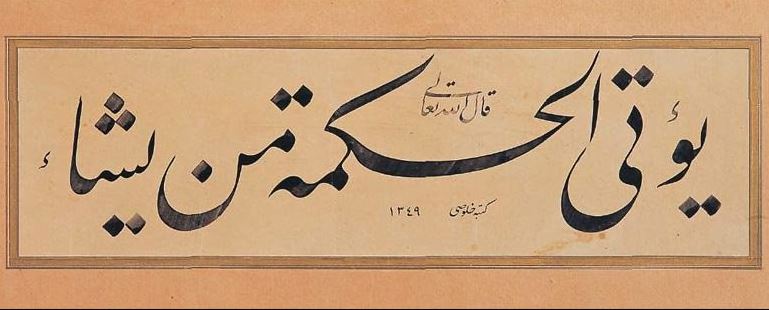 قال الله تعالى
يؤتى الحكمة من يشاء
كتبه خلوصى ١٣٤٩